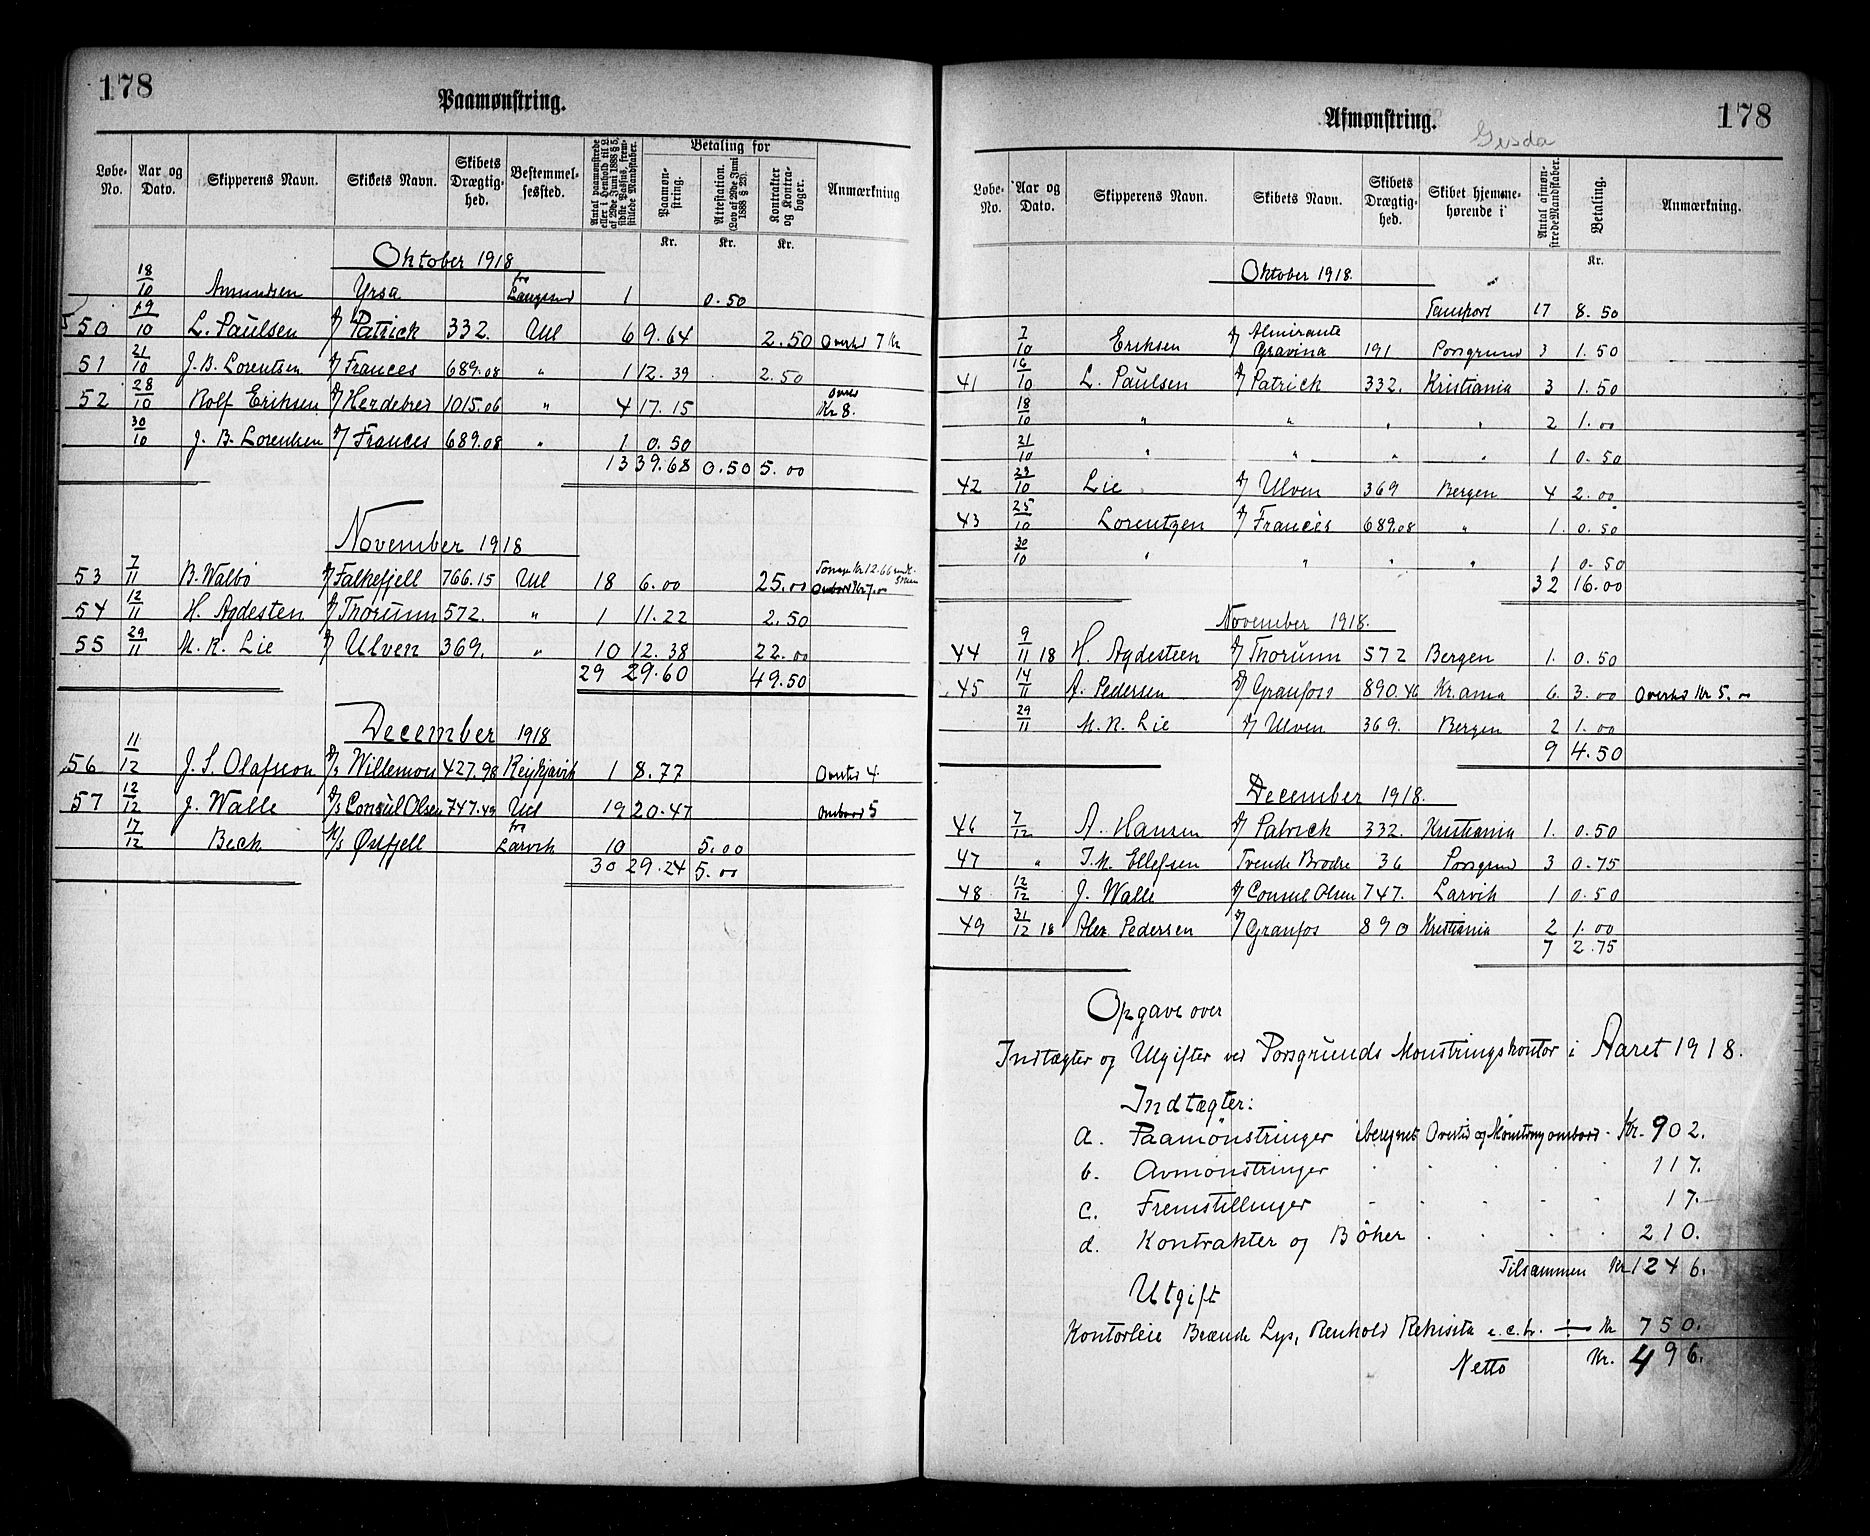 178
Paamønstring.
Løbe-No. Aar og Dato. Skipperens Navn. Skibets Navn. Skibets Drægtighed. Bestemmelsessted. Antal paamønstrede eller i Henhold til L. af 29de Juni 1888 § 5, sidste Passus, fremstillede Mandskaber. Betaling for Paamønstring. Attestation. (Lov af 29de Juni 1888 § 23). Kontrakter og Kontrabøger. Anmærkning
Kr. Kr. Kr.
Oktober 1918
18/10 Amundsen Yrsa fra Langesund 1 0.50
550 19/10 L. Paulsen Patrick 332. Ud 6 9.64 2.50 Overtid 7 Kr
51 21/10 J. B. Lorentsen Frances 689.08 " 1 12.39 2.50
52 28/10 Rolf Eriksen Herdebred 1015.06 " 4 17.15 Kr 8.
30/10 J. B. Lorentsen Frances 689.08 " 1 0.50
13 39.68 0.50 5.00
November 1918
53 7/11 B. Walbø Falkefjell 766.15 Ud 18 6.00 25.00 Kr 12.66 Ombord Kr 7.00
54 12/11 H. Agdesten Thorunn 572. " 1 11.22 2.50
55 29/11 M. R. Lie Ulven 369. " 10 12.38 22.00
29 29.60 49.50
December 1918
56 11/12 J. S. Olafsson Willemoes 427.98 Reykjavik 1 8.77 Overtid 4
57 12/12 J. Walle Consul Olsen 747.49 Ud 19 20.47 ombord 5
17/12 Beck M/s Østfjell fra Larvik 10 5.00
30 29.24 5.00
Afmønstring.
178
Løbe-No. Aar og Dato. Skipperens Navn. Skibets Navn. Skibets Drægtighed. Skibet hjemmehørende i Antal afmønstrede Mandskaber. Betaling. Anmærkning.
Kr.
Oktober 1918.
Transport 17 8.50
7/10 Eriksen Almirante Gravina 191 Porsgrund 3 1.50
41 16/10 L. Paulsen Patrick 332. Kristiania 3 1.50
18/10 " " " " 2 1.00
21/10 " " " " 1 0.50
42 23/10 Lie Ulven 369 Bergen 4 2.00
43 25/10 Lorentzen Frances 689.08 " 1. 0.50
30/10 " " " " 1 0.50
32 16.00
November 1918.
44 9/11 18 H. Agdesteen Thorunn 572 Bergen 1. 0.50
45 14/11 A. Pedersen Granfoss 890.46 Kr.ania 6. 3.00 Overtid Kr 5.00
29/11 M. R. Lie Ulven 369. Bergen 2 1.00
9 4.50
December 1918.
46 7/12 A. Hansen Patrick 332. Kristiania 1. 0.50
47 " I. M. Ellefsen Tvende Brødre 36 Porsgrund 3 0.75
48 12/12 J. Walle Consul Olsen 747. Larvik 1 0.50
49 31/12 18 Alex Pedersen Granfos 890 Kristiania 2 1.00
7 2.75
Opgave over
Indtægter og Utgifter ved Porsgrunds Mønstringskontor i Aaret 1918.
Indtægter:
a. Paamønstringer iberegnet Overtid og Mønstring ombord - Kr. 902.
b. Avmønstringer 117.
c. Fremstillinger 17.
d. Kontrakter og Bøker 210.
Tilsammen Kr 1246.
Utgift
Kontorleie Brænde Lys, Renhold Rekvisita e.c.t. Kr 750.
Netto Kr. 496.